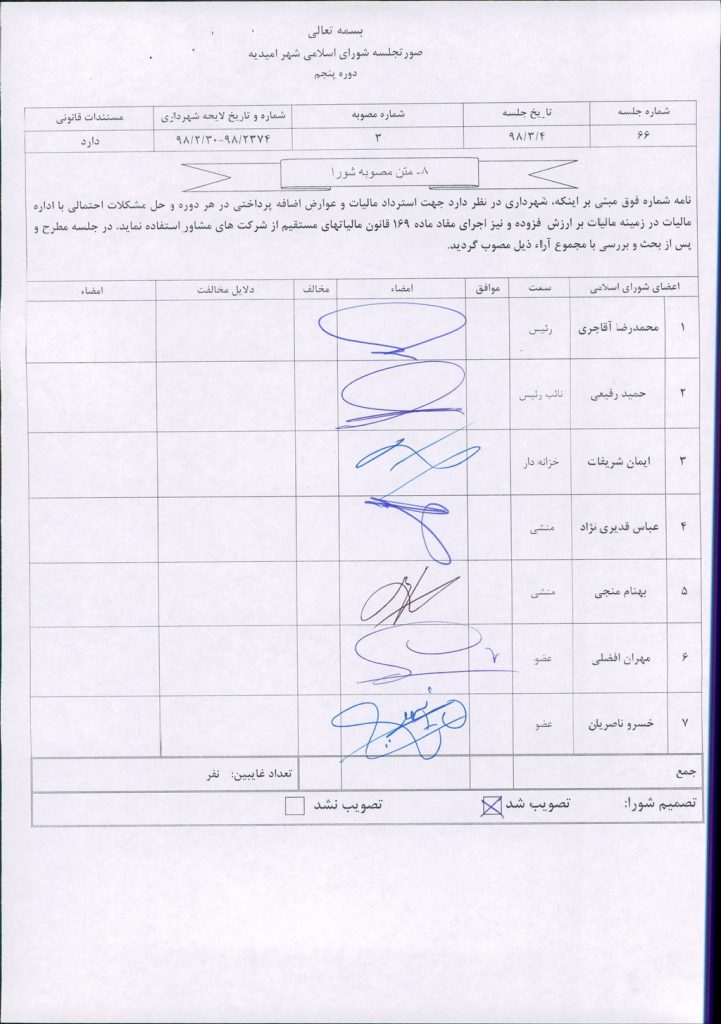 بسمه تعالی
صورتجلسه شورای اسلامی شهر امیدیه
دوره پنجم
شماره جلسه تاریخ جلسه شماره مصوبه شماره و تاریخ لایحه شهرداری مستندات قانونی
۶۶ ۹۸/۳/۴ ۳ ۹۸/۲/۳۰-۹۸/۲۳۷۴ دارد
۸- متن مصوبه شورا
نامه شماره فوق مبنی بر اینکه، شهرداری در نظر دارد جهت استرداد مالیات و عوارض اضافه پرداختی در هر دوره و حل مشکلات احتمالی با اداره
مالیات در زمینه مالیات بر ارزش فزوده و نیز اجرای مفاد ماده ۱۶۹ قانون مالیاتهای مستقیم از شرکت های مشاور استفاده نماید. در جلسه مطرح و
پس از بحث و بررسی با مجموع آراء ذیل مصوب گردید.
اعضای شورای اسلامی سمت موافق امضاء مخالف دلایل مخالفت امضاء
۱ محمدرضا آقاجری رئیس
۲ حمید رفیعی نائب رئیس
۳ ایمان شریفات خزانه دار
۴ عباس قدیری نژاد منشی
۵ بهنام منجی منشی
۶ مهران افضلی عضو
۷ خسرو ناصریان عضو
جمع تعداد غایبین: نفر
تصمیم شورا: تصویب شد تصویب نشد